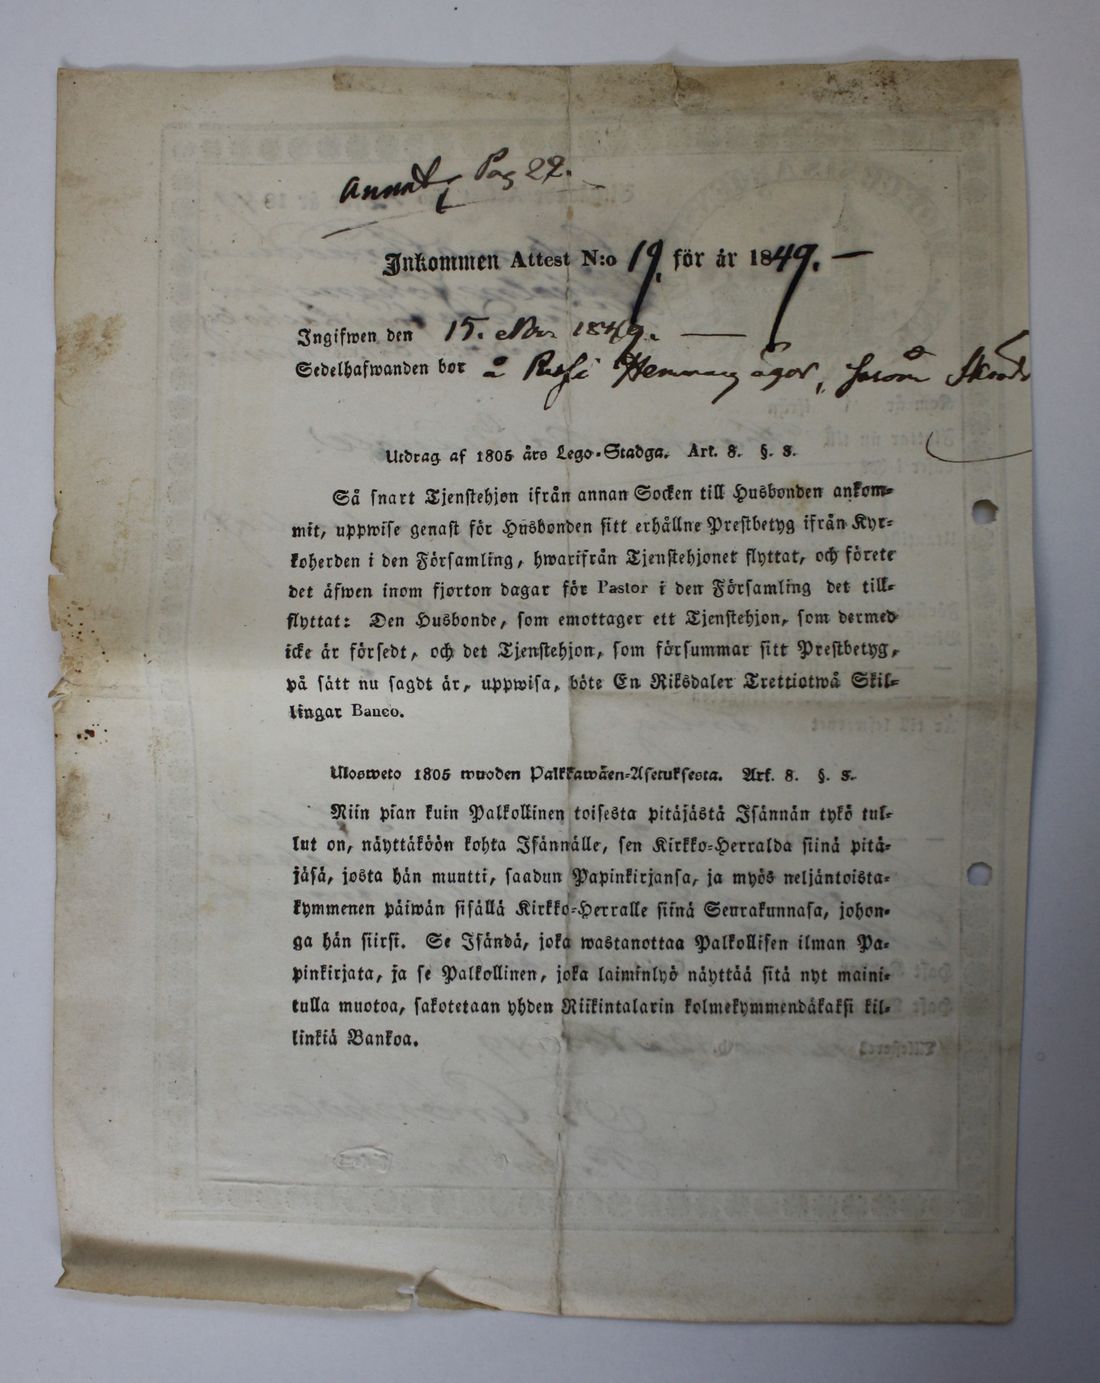 Annot. Pag 22.
Inkommen Attest N:o 19. för år 1849. —
Ingifwen den 15. Nov. 1849. —
Sedelhafwanden bor å Hemmansägor,
Utdrag af 1805 års Lego-Stadga. Art. 8. §. 3.
Så snart Tjenstehjon ifrån annan Socken till Husbonden ankom-
mit, uppwise genast för Husbonden sitt erhållne Prestbetyg ifrån Kyr-
koherden i den Församling, hwarifrån Tjenstehjonet flyttat, och förete
det äfwen inom fjorton dagar för Pastor i den Församling det till-
flyttat: Den Husbonde, som emottager ett Tjenstehjon, som dermed
icke är försedt, och det Tjenstehjon, som försummar sitt Prestbetyg,
på sätt nu sagdt är, uppwisa, böte En Riksdaler Trettiotwå Skil-
lingar Banco.
Ulosweto 1805 wuoden Palkkawäen-Asetuksesta. Art. 8. §. 3.
Niin pian kuin Palkollinen toisesta pitäjästä Isännän tykö tul-
lut on, näyttäköön kohta Isännälle, sen Kirkko-Herralda siinä pitä-
jäsä, josta hän muutti, saadun Papinkirjansa, ja myös neljäntoista-
kymmenen päiwän sisällä Kirkko-Herralle siinä Seurakunnasa, johon-
ga hän siirsi. Se Isändä, joka wastanottaa Palkollisen ilman Pa-
pinkirjata, ja se Palkollinen, joka laiminlyö näyttää sitä nyt maini-
tulla muotoa, sakotetaan yhden Riikintalarin kolmekymmendäkaksi kil-
linkiä Bankoa.